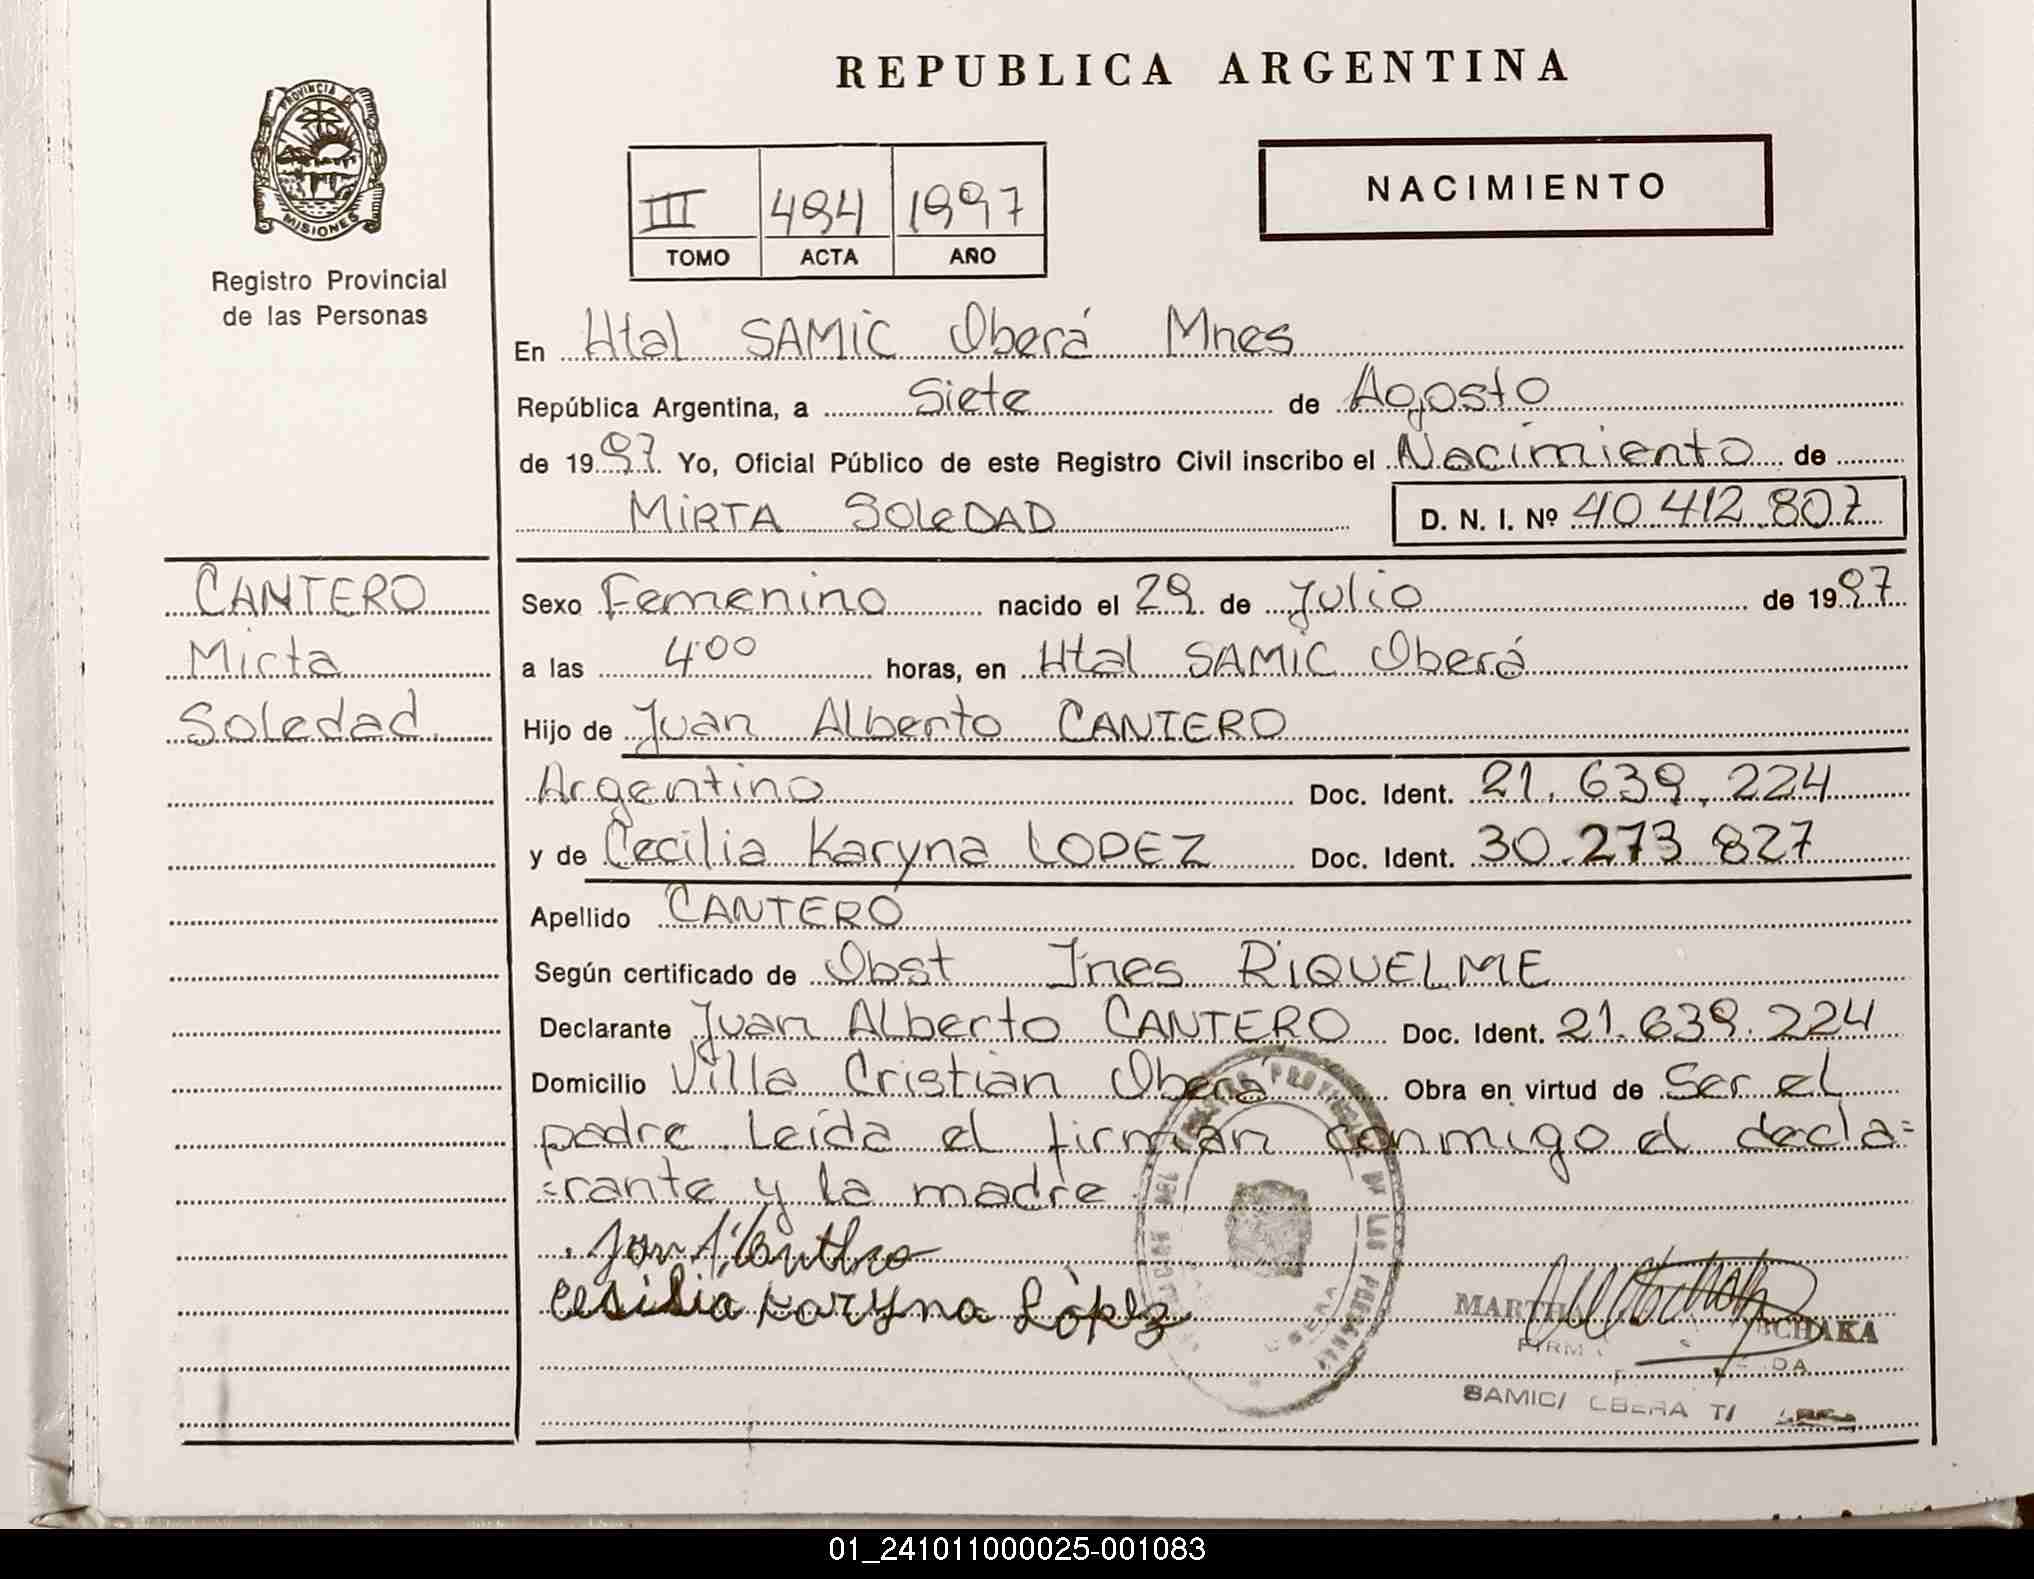 REPUBLICA ARGENTINA
PROVINCIA DE
MISIONES
Registro Provincial
de las Personas
III 494 1997
TOMO ACTA AÑO
NACIMIENTO
En Htal SAMIC Oberá Mnes
República Argentina, a Siete de Agosto
de 1997. Yo, Oficial Público de este Registro Civil inscribo el Nacimiento de
MIRTA SOLEDAD D. N. I. Nº 40 412 807
CANTERO
Mirta
Soledad
Sexo Femenino nacido el 29 de Julio de 1997
a las 4:00 horas, en Htal SAMIC Oberá
Hijo de Juan Alberto CANTERO
Argentino Doc. Ident. 21.639.224
y de Cecilia Karyna LOPEZ Doc. Ident. 30.273 827
Apellido CANTERO
Según certificado de Obst Ines RIQUELME
Declarante Juan Alberto CANTERO Doc. Ident. 21.639.224
Domicilio Villa Cristian Oberá Obra en virtud de Ser el
padre. Leida el firman conmigo el decla=
=rante y la madre
Cesilia Karyna López
MARTHA
FIRMA
SAMIC/ OBERA
01_241011000025-001083